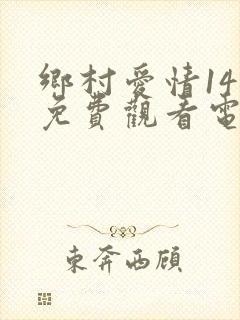 鄉村愛情14
免費觀看電
東奔西顧